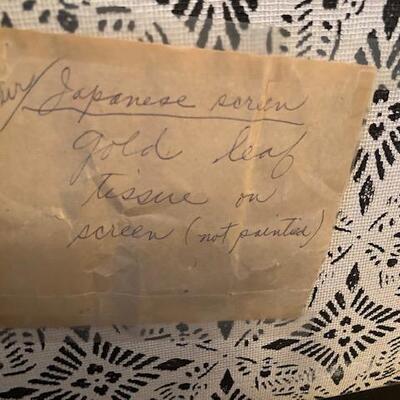 Japanese screen
gold leaf
tissue on
screen (not painted)